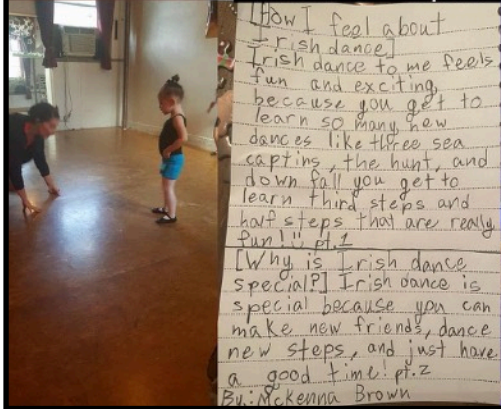 [How I feel about
Irish dance]
Irish dance to me feels
fun and exciting
because you get to
learn so many new
dances like three sea
captins, the hunt, and
down fall you get to
learn third steps and
half steps that are really
fun! pt.1
[Why is Irish dance
special?] Irish dance is
special because you can
make new friends, dance
new steps, and just have
a good time! pt.2
By: Mckenna Brown